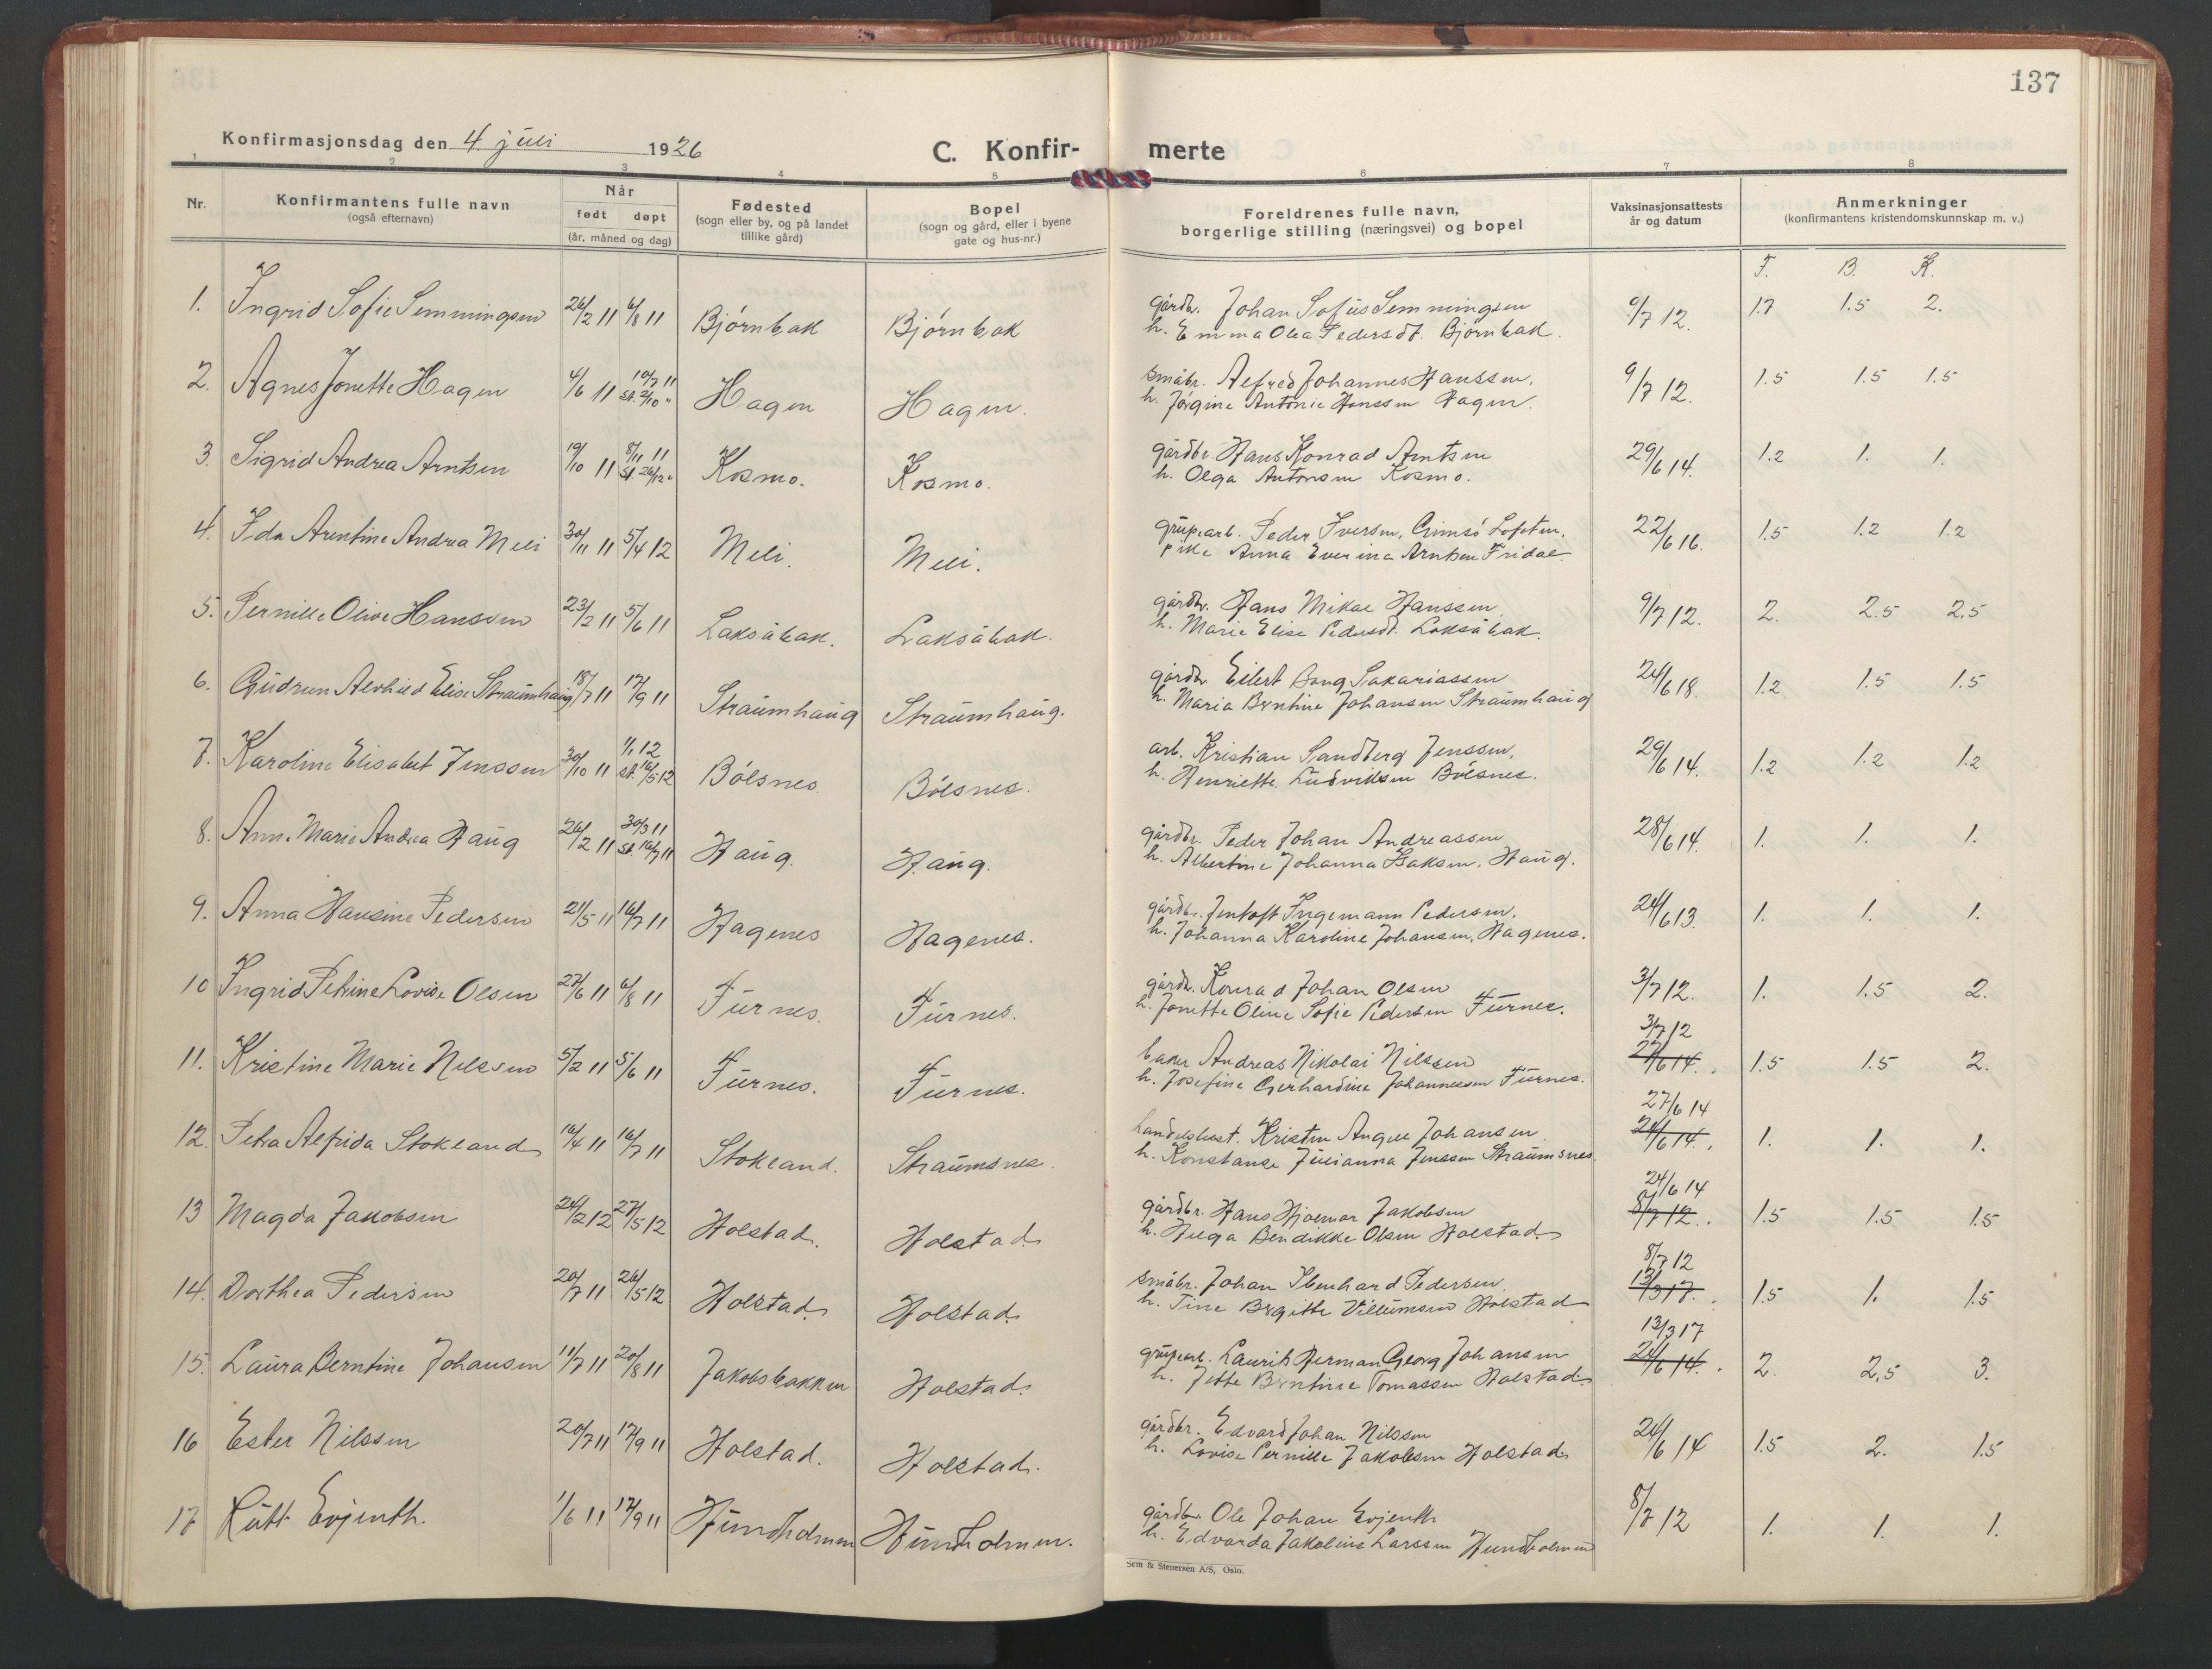 137
Konfirmasjonsdag den 4. juli 1926
C. Konfir-merte
1 2 3 4 5 6 7 8
Nr. Konfirmantens fulle navn (også efternavn) Når født døpt (år, måned og dag) Fødested (sogn eller by, og på landet tillike gård) Bopel (sogn og gård, eller i byene gate og hus-nr.) Foreldrenes fulle navn, borgerlige stilling (næringsvei) og bopel Vaksinasjonsattests år og datum Anmerkninger (konfirmantens kristendomskunnskap m. v.)
F. B. K.
1. Ingrid Sofie Semmingsen 26/2 11 6/8 11 Bjørnbak Bjørnbak gårdbr. Johan Sofus Semmingsen 9/7 12. 1.7 1.5 2.
h. Emma Olea Pedersdt. Bjørnbak.
2. Agnes Jonette Hagen 4/6 11 10/7 11 st. 2/10 " Hagen Hagen. småbr. Alfred Johannes Hanssen, 9/7 12. 1.5 1.5 1.5
h. Jørgine Antonie Hanssen Hagen.
3. Sigrid Andrea Arntsen 19/10 11 8/11 11 st. 26/12 " Kosmo. Kosmo. gårdbr. Hans Konrad Arntsen 29/6 14. 1.2 1. 1.
h. Olga Antonsen Kosmo.
4. Ida Arentine Andrea Meli 30/11 11 5/4 12 Meli. Meli. grubearb. Peder Iversen, Gimsø Lofoten. 22/6 16. 1.5 1.2 1.2
pike Anna Everina Arntsen Fridal
5. Pernille Olive Hanssen 23/2 11 5/6 11 Laksåbak. Laksåbak. gårdbr. Hans Mikal Hanssen 9/7 12. 2. 2.5 2.5
h. Marie Elise Pedersdt. Laksåbak.
6. Gudrun Alvhild Elise Straumhaug 18/7 11 17/9 11 Straumhaug Straumhaug. gårdbr. Eilert Bang Sakariassen 24/6 18. 1.2 1.5 1.5
h. Maria Berntine Johansen Straumhaug
7. Karoline Elisabet Jenssen 30/10 11 1/1 12 st. 16/5 12 Bølsnes. Bølsnes. arb. Kristian Sandberg Jenssen, 29/6 14. 1.2 1.2 1.2
h. Henriette Ludviksen Bølsnes.
8. Anna Marie Andrea Haug 26/2 11 30/3 11 st. 16/7 11 Haug. Haug. gårdbr. Peder Johan Andreassen 28/6 14. 1. 1. 1.
h. Albertine Johanna Isaksen, Haug.
9. Anna Hansine Pedersen 21/5 11 16/7 11 Hagenes Hagenes. gårdbr. Jentoft Ingemann Pedersen. 24/6 13. 1. 1. 1.
h. Johanna Karoline Johansen, Hagenes.
10 Ingrid Petrine Lovise Olsen 27/6 11 6/8 11 Furnes. Furnes. gårdbr. Konrad Johan Olsen 3/7 12. 1. 1.5 2.
h. Jonette Oline Sofie Pedersen Furnes.
11. Kristine Marie Nilssen 5/2 11 5/6 11 Furnes. Furnes. baker Andreas Nikolai Nilssen 3/7 12 27/6 14. 1.5 1.5 2.
h. Josefine Gerhardine Johannessen Furnes.
12. Petra Alfrida Stokland 16/4 11 16/7 11 Stokland. Straumsnes. handelsbest. Kristen Angell Johansen 27/6 14 24/6 14. 1. 1. 1.
h. Konstanse Julianna Jenssen Straumsnes.
13 Magda Jakobsen 24/2 12 27/5 12 Holstad. Holstad. gårdbr. Hans Hjalmar Jakobsen 24/6 14 8/7 12. 1.5 1.5 1.5
h. Helga Bendikke Olsen Holstad.
14. Dorthea Pedersen 20/7 11 26/5 12 Holstad. Holstad. småbr. Johan Ibenhard Pedersen. 8/7 12 13/3 17. 1.5 1. 1.5
h. Tine Birgitte Villumsen Holstad
15. Laura Berntine Johansen 11/7 11 20/8 11 Jakobsbakken Holstad. grubearb. Laurits Herman Georg Johansen 13/3 17 24/6 14. 2. 2,5 3.
h. Jette Berntine Tomassen Holstad.
16 Ester Nilssen 20/7 11 17/9 11 Holstad. Holstad. gårdbr. Edvard Johan Nilssen 24/6 14 1.5 2. 1.5
h. Lovise Pernille Jakobsen Holstad.
17 Rutt Evjenth. 1/6 11 17/9 11 Hundholmen Hundholmen. gårdbr. Ole Johan Evjenth 8/7 12 1. 1. 1.
h. Edvarda Jakobine Larssen Hundholmen
Sem & Stenersen A/S, Oslo.